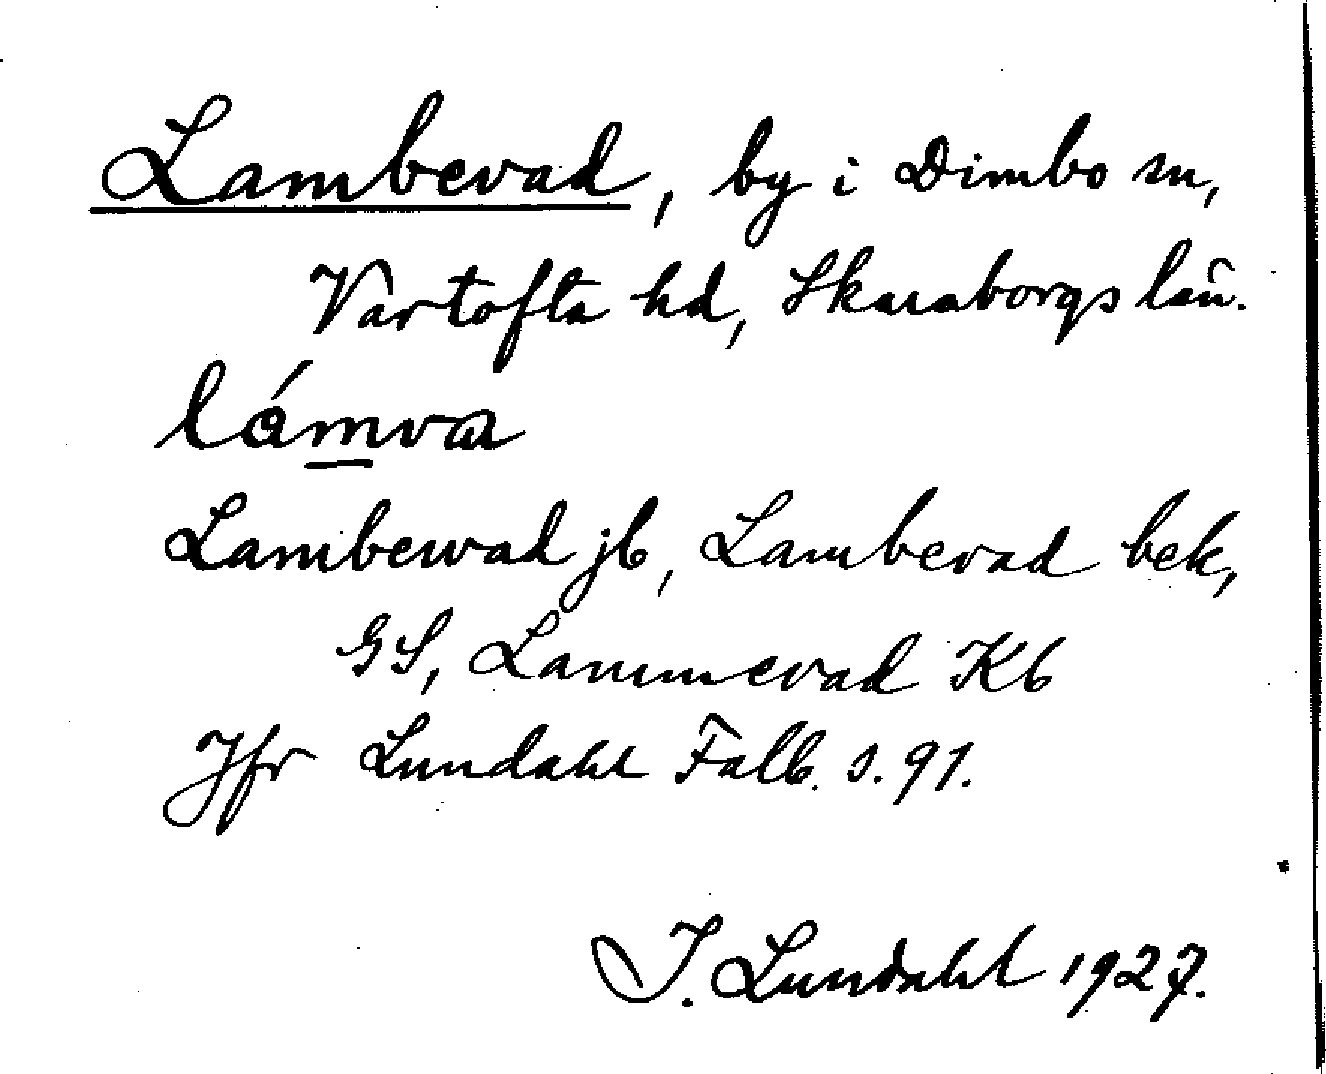 Lambevad, by i Dimbo sn,
Vartofta hd, Skaraborgs län.
lámva
Lambewad jb, Lambevad bek,
GS, Lammevad Kb
Jfr Lundahl Falb. s. 91.
I. Lundahl 1927.